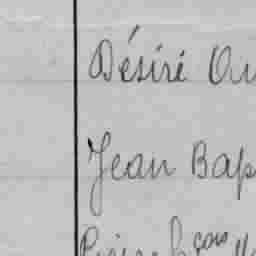 Désiré Ou
Jean Bap